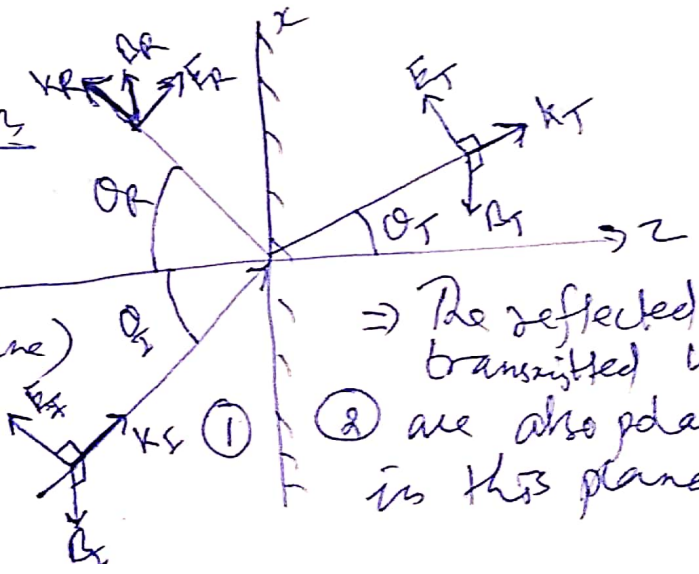 x
B_R
K_R E_R
E_T
K_T
θ_R
θ_T B_T z
⇒ The reflected
θ_I
transmitted
K_I ① ② are also pola
in this plane
B_I